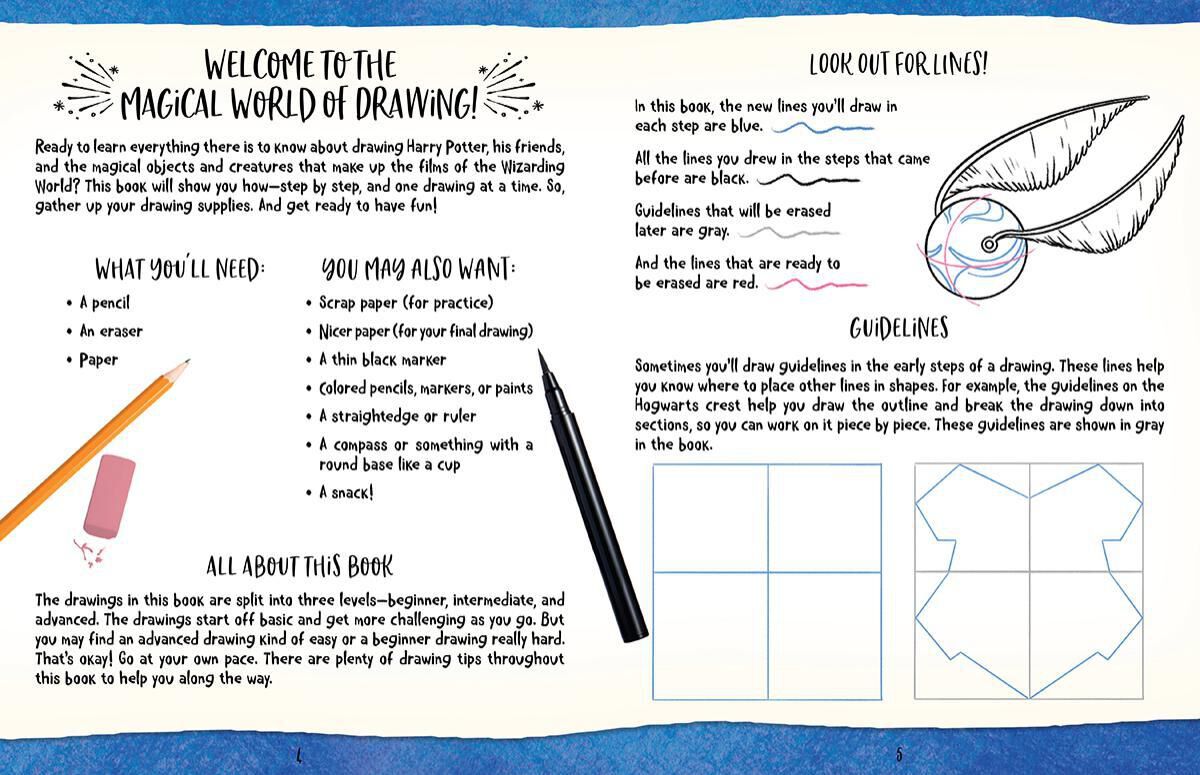 WELCOME TO THE
MAGICAL WORLD OF DRAWING!
Ready to learn everything there is to know about drawing Harry Potter, his friends,
and the magical objects and creatures that make up the films of the Wizarding
World? This book will show you how—step by step, and one drawing at a time. So,
gather up your drawing supplies. And get ready to have fun!
WHAT YOU'LL NEED:
• A pencil
• An eraser
• Paper
YOU MAY ALSO WANT:
• Scrap paper (for practice)
• Nicer paper (for your final drawing)
• A thin black marker
• Colored pencils, markers, or paints
• A straightedge or ruler
• A compass or something with a
round base like a cup
• A snack!
ALL ABOUT THIS BOOK
The drawings in this book are split into three levels—beginner, intermediate, and
advanced. The drawings start off basic and get more challenging as you go. But
you may find an advanced drawing kind of easy or a beginner drawing really hard.
That's okay! Go at your own pace. There are plenty of drawing tips throughout
this book to help you along the way.
4
LOOK OUT FOR LINES!
In this book, the new lines you'll draw in
each step are blue.
All the lines you drew in the steps that came
before are black.
Guidelines that will be erased
later are gray.
And the lines that are ready to
be erased are red.
GUIDELINES
Sometimes you'll draw guidelines in the early steps of a drawing. These lines help
you know where to place other lines in shapes. For example, the guidelines on the
Hogwarts crest help you draw the outline and break the drawing down into
sections, so you can work on it piece by piece. These guidelines are shown in gray
in the book.
5